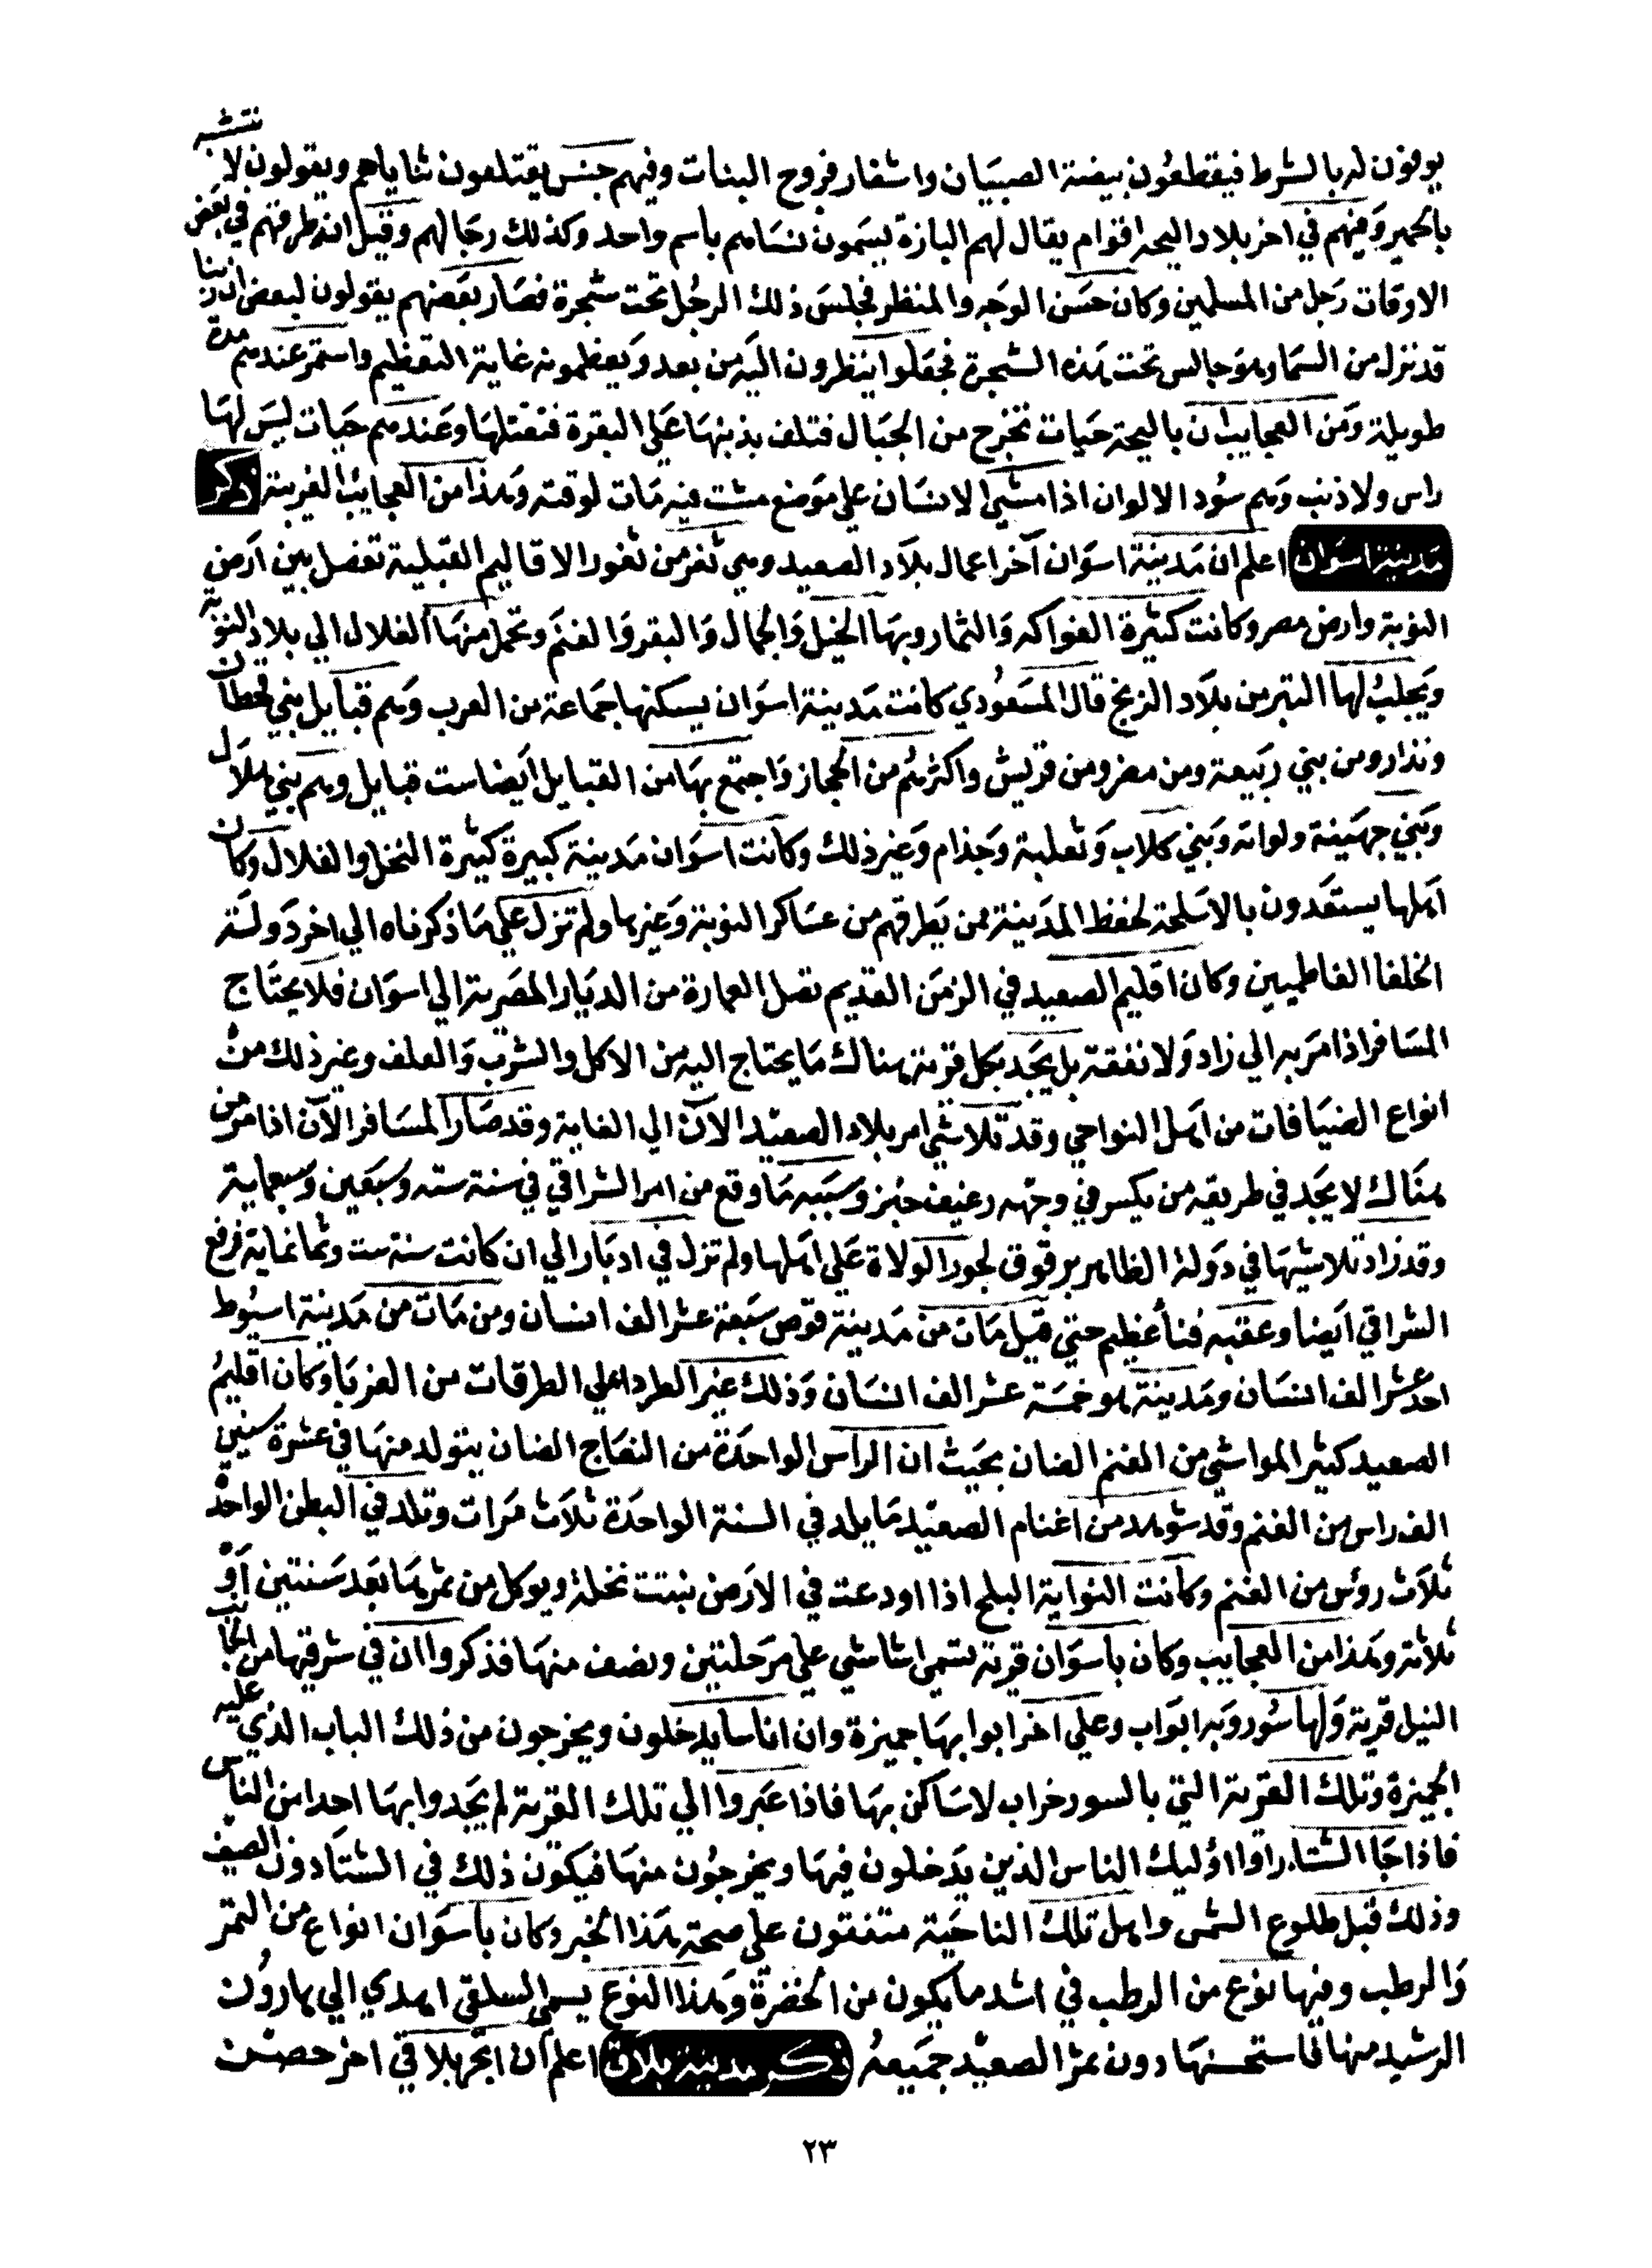 يوفون له بالشرط فيقطعون بيضة الصبيان واشفار فروج البنات وفيهم جنس يقتلعون ثناياهم ويقولون لا نتشبه
بالحمير وفيهم في اخر بلاد البجه اقوام يقال لهم البازة يسمون نساهم باسم واحد وكذلك رجالهم وقيل انه طرقهم في بعض
الاوقات رجل من المسلمين وكان حسن الوجه والمنظر فجلس ذلك الرجل تحت شجرة فصار بعضهم يقولون لبعض ان ربنا
قد نزل من السما وهو جالس تحت هذه الشجرة فجعلوا ينظرون اليه من بعد ويعظمونه غاية التعظيم واستمر عندهم مدة
طويلة ومن العجايب ان بالبجة حيات تخرج من الجبال فتلف بذنبها على البقرة فتقتلها وعندهم حيات ليس لها
راس ولا ذنب وهم سود الالوان اذا مشي الانسان علي موضع مشت فيه مات لوقته وهذا من العجايب الغريبة ذكر
مدينة اسوان اعلم ان مدينة اسوان آخر اعمال بلاد الصعيد وهي ثغر من ثغور الاقاليم القبلية تفصل بين ارض
النوبة وارض مصر وكانت كثيرة الفواكه والثمار وبها الخيل والجمال والبقر والغنم وتحمل منها الغلال الي بلاد النوبة
ويجلب لها التبر من بلاد الزنج قال المسعودي كانت مدينة اسوان يسكنها جماعة من العرب وهم قبايل بني قحطان
ونذار ومن بني ربيعة ومن مضر ومن قريش واكثرهم من الحجاز واجتمع بها من القبايل ايضا ست قبايل وهم بني هلال
وبني جهينة ولواته وبني كلاب وثعلبة وجذام وغير ذلك وكانت اسوان مدينة كبيرة كثيرة النخل والغلال وكان
اهلها يستعدون بالاسلحة لحفظ المدينة ممن يطرقهم من عساكر النوبة وغيرها ولم تزل علي ما ذكرناه الي اخر دولة
الخلفا الفاطميين وكان اقليم الصعيد في الزمن القديم تصل العمارة من الديار المصرية الي اسوان فلا يحتاج
المسافر اذا مر به الي زاد ولا نفقة بل يجد بكل قرية هناك ما يحتاج اليه من الاكل والشرب والعلف وغير ذلك من
انواع الضيافات من اهل النواحي وقد تلاشي امر بلاد الصعيد الآن الي الغاية وقد صار المسافر الآن اذا مر من
هناك لا يجد في طريقه من يكسر في وجهه رغيف خبز وسببه ما وقع من امر الشراقي في سنة سته وسبعين وسبعماية
وقد زاد تلاشيها في دولة الظاهر برقوق لجور الولاة على اهلها ولم تزل في ادبار الي ان كانت سنة ست وثمانماية فرقع
الشراقي ايضا وعقبه فنا عظيم حتي قيل مات من مدينة قوص سبعة عشر الف انسان ومن مات من مدينة اسيوط
احد عشر الف انسان ومدينة هو خمسة عشر الف انسان وذلك غير الطردا علي الطرقات من الغربا وكان اقليم
الصعيد كثير المواشي من الغنم الضان بحيث ان الراس الواحدة من النعاج الضان يتولد منها في عشرة سنين
الف راس من الغنم وقد شوهد من اغنام الصعيد ما يلد في السنة الواحدة ثلاث مرات وتلد في البطن الواحد
ثلاث روس من الغنم وكانت النواية البلح اذا اودعت في الارض نبتت نخلة ويوكل من ثمرها بعد سنتين او
ثلاثة وهذا من العجايب وكان باسوان قرية تسمى اشاشي علي مرحلتين ونصف منها فذكروا ان في شرقيها من الجانب
النيل قرية ولها سور وبه ابواب وعلي اخر ابوابها جميزة وان اناسا يدخلون ويخرجون من ذلك الباب الذي عليه
الجميزة وتلك القرية التي بالسور خراب لا ساكن بها فاذا عبروا الي تلك القرية لم يجدوا بها احدا من الناس
فاذا جا الشتا راوا اوليك الناس الذين يدخلون فيها ويخرجون منها فيكون ذلك في الشتا دون الصيف
وذلك قبل طلوع الشمس واهل تلك الناحية متفقون علي صحة هذا الخبر وكان باسوان انواع من التمر
والرطب وفيها نوع من الرطب في اشد ما يكون من الخضرة وهذا النوع يسمي السلقي اهدي الي هارون
الرشيد منها فاستحسنها دون تمر الصعيد جميعه ذكر مدينة بلاق اعلم ان ابجر بلاقي اخر حصن
٢٣